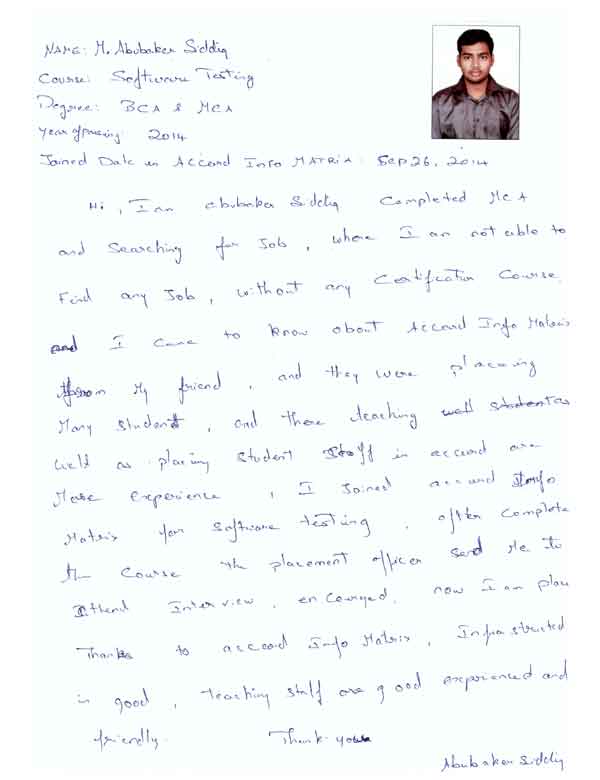 NAME: M. Abubaker Siddiq
Course: Software Testing
Degree: BCA & MCA
Year of passing: 2014
Joined Date in Accord Info MATRIX: Sep 26, 2014
Hi, I am abubaker Siddiq Completed MCA
and Searching for Job, where I am not able to
Find any Job, without any Certification Course
and I came to know about Accord Info Matrix
from My friend, and they were placening
Many student, and there teaching well students as
well as placing student Staff in accord are
More experience, I Joined accord Info
Matrix for software testing, after complete
the course the placement officer send Me to
Attend Interview, encouraged, now I am place
Thanks to accord Info Matrix, Infra structed
is good, teaching staff are good experienced and
friendly. Thank you
Abubaker Siddiq